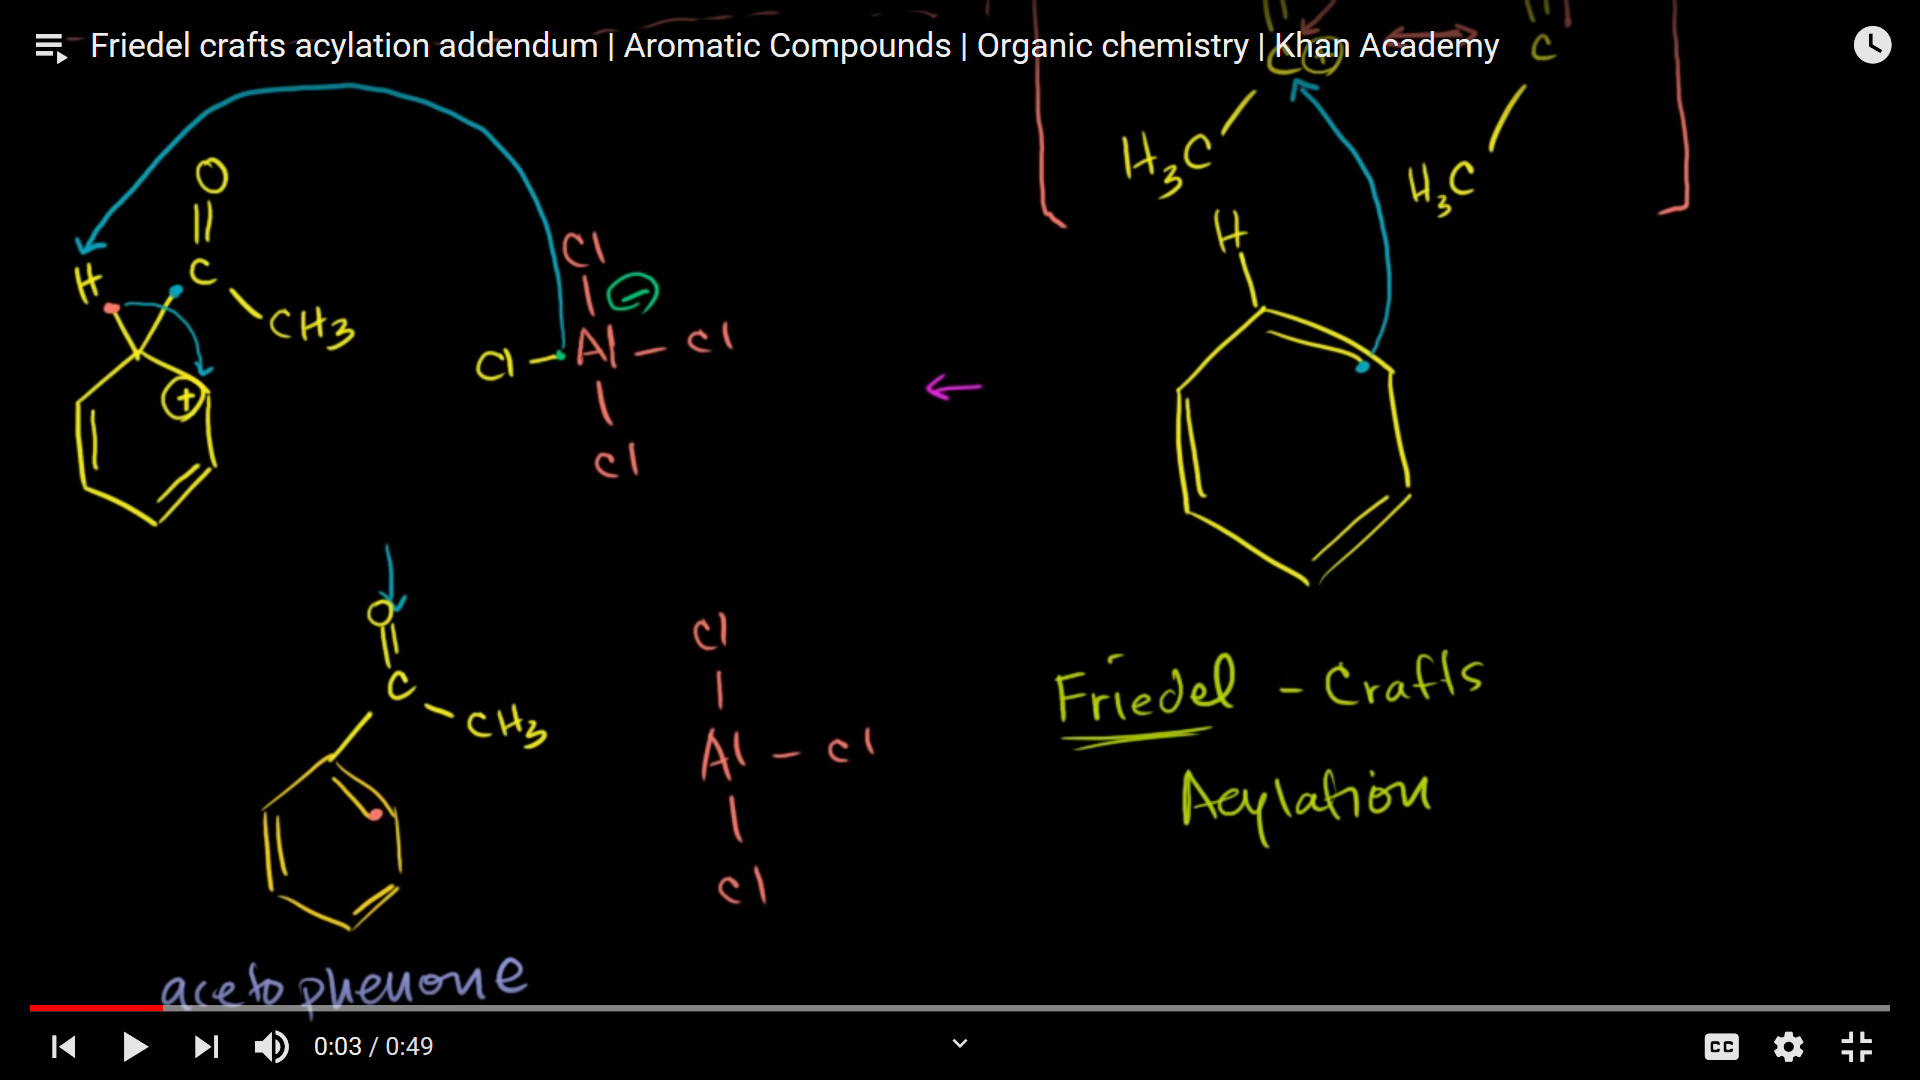 Friedel crafts acylation addendum | Aromatic Compounds | Organic chemistry | Khan Academy
C + C
H₃C H₃C
O
H
Cl
H C −
CH3
Cl Al Cl
+
Cl
O
Cl
C
CH3
Friedel - Crafts
Al Cl
Acylation
Cl
acetophenone
0:03 / 0:49
CC